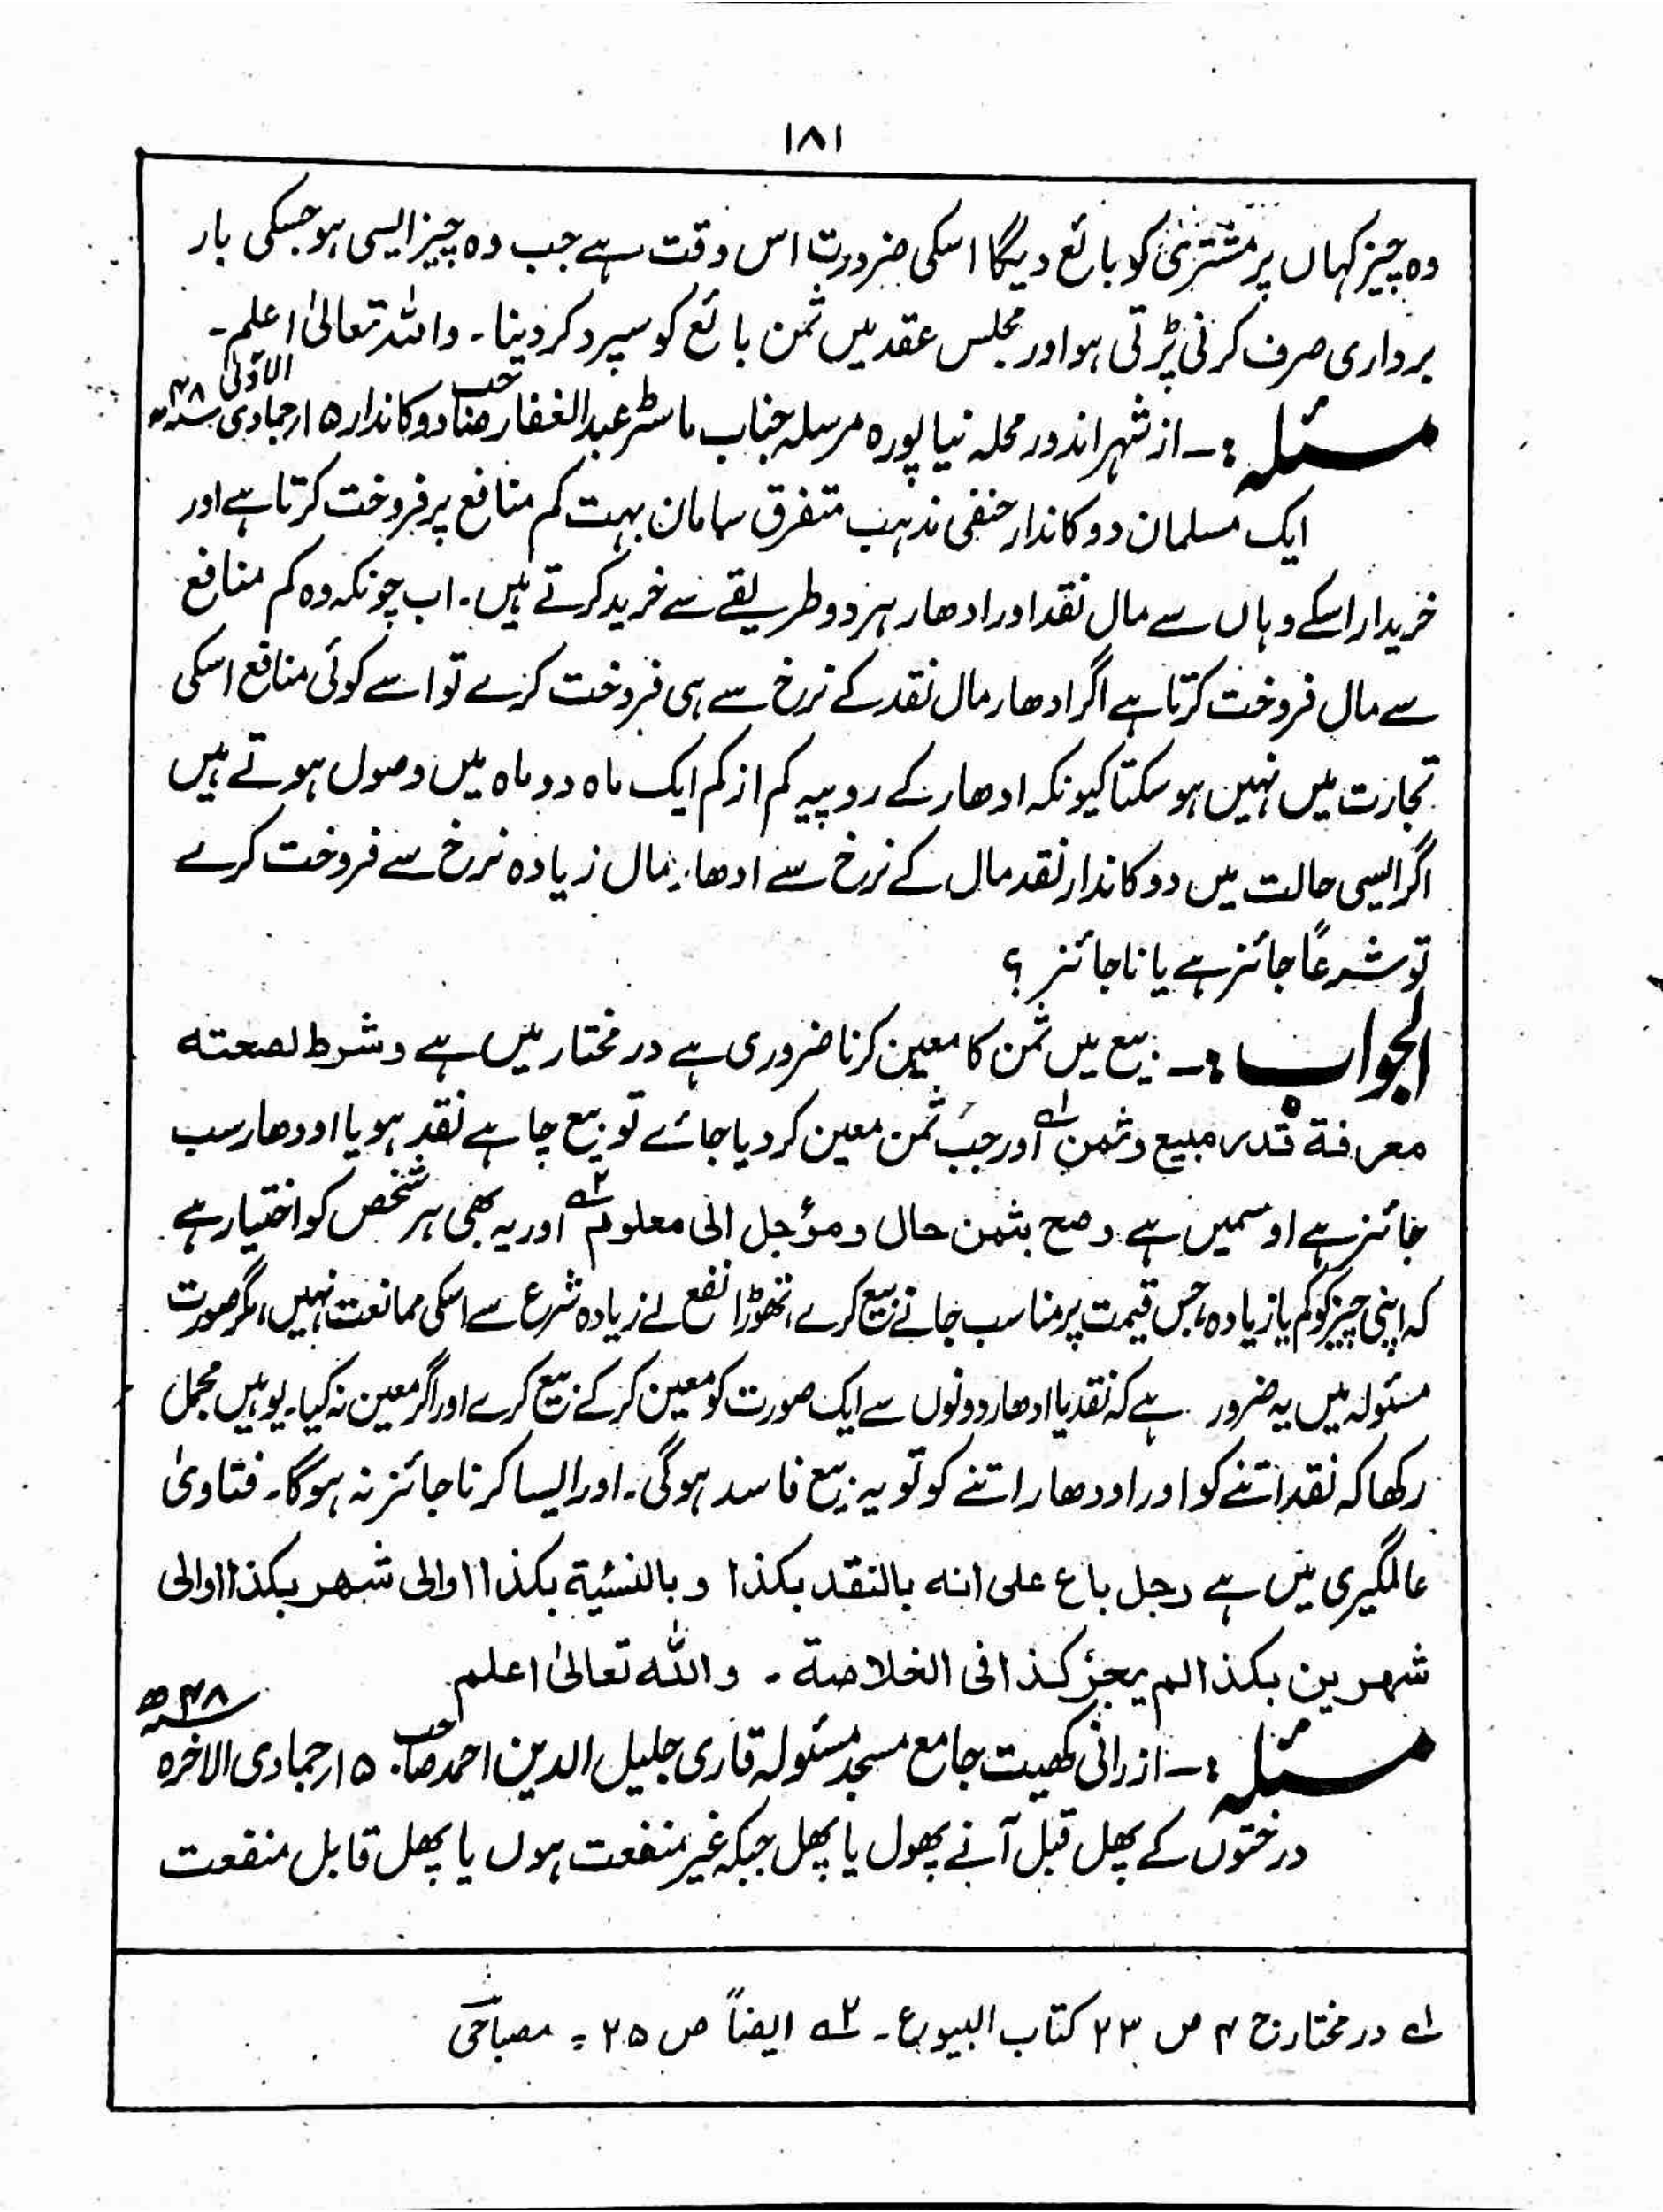 ۱۸۱
وہ چیز کہاں پر مشتری کو بائع دیگا اسکی ضرورت اس وقت ہے جب وہ چیز ایسی ہو جسکی بار
برداری صرف کرنی پڑتی ہو اور مجلس عقد میں ثمن بائع کو سپرد کر دینا۔ واللہ تعالیٰ اعلم۔
مسئلہ :۔ از شہر اندور محلہ نیاپورہ مرسلہ جناب ماسٹر عبدالغفار صاحب دوکاندار ۱۵ جمادی الاولیٰ ۴۸ھ
ایک مسلمان دوکاندار حنفی مذہب متفرق سامان بہت کم منافع پر فروخت کرتا ہے اور
خریدار اسکے وہاں سے مال نقد اور ادھار ہر دو طریقے سے خرید کرتے ہیں۔ اب چونکہ وہ کم منافع
سے مال فروخت کرتا ہے اگر ادھار مال نقد کے نرخ سے ہی فروخت کرے تو اسے کوئی منافع اسکی
تجارت میں نہیں ہو سکتا کیونکہ ادھار کے روپیہ کم از کم ایک ماہ دو ماہ میں وصول ہوتے ہیں
اگر ایسی حالت میں دوکاندار نقد مال کے نرخ سے ادھار مال زیادہ نرخ سے فروخت کرے
تو شرعًا جائز ہے یا ناجائز ؟
الجواب :۔ بیع میں ثمن کا معین کرنا ضروری ہے در مختار میں ہے وشرط لصحته
معرفة قدر مبیع وثمن ۱ے اور جب ثمن معین کر دیا جائے تو بیع چاہے نقد ہو یا اودھار سب
جائز ہے اوسمیں ہے وصح بثمن حال ومؤجل الی معلوم ۲ے اور یہ بھی ہر شخص کو اختیار ہے
کہ اپنی چیز کو کم یا زیادہ، جس قیمت پر مناسب جانے بیع کرے، تھوڑا نفع لے زیادہ شرع سے اسکی ممانعت نہیں، مگر صورت
مسئولہ میں یہ ضرور ہے کہ نقد یا ادھار دونوں سے ایک صورت کو معین کر کے بیع کرے اور اگر معین نہ کیا۔ یوہیں مجمل
رکھا کہ نقد اتنے کو اور اودھار اتنے کو تو یہ بیع فاسد ہوگی۔ اور ایسا کرنا جائز نہ ہوگا۔ فتاویٰ
عالمگیری میں ہے رجل باع علی انه بالنقد بکذا وبالنسئیة بکذا او الی شهر بکذا او الی
شهرین بکذا لم یجز کذا فی الخلاصة ۔ واللّٰه تعالیٰ اعلم
مسئلہ :۔ از رانی کھیت جامع مسجد مسئولہ قاری جلیل الدین احمد صاحب ۱۵ جمادی الاخرہ ۴۸ھ
درختوں کے پھل قبل آنے پھول یا پھل جبکہ غیر منفعت ہوں یا پھل قابل منفعت
۱ے در مختار ج ۴ ص ۲۳ کتاب البیوع۔ ۲ے ایضاً ص ۲۵ ؞ مصباحی